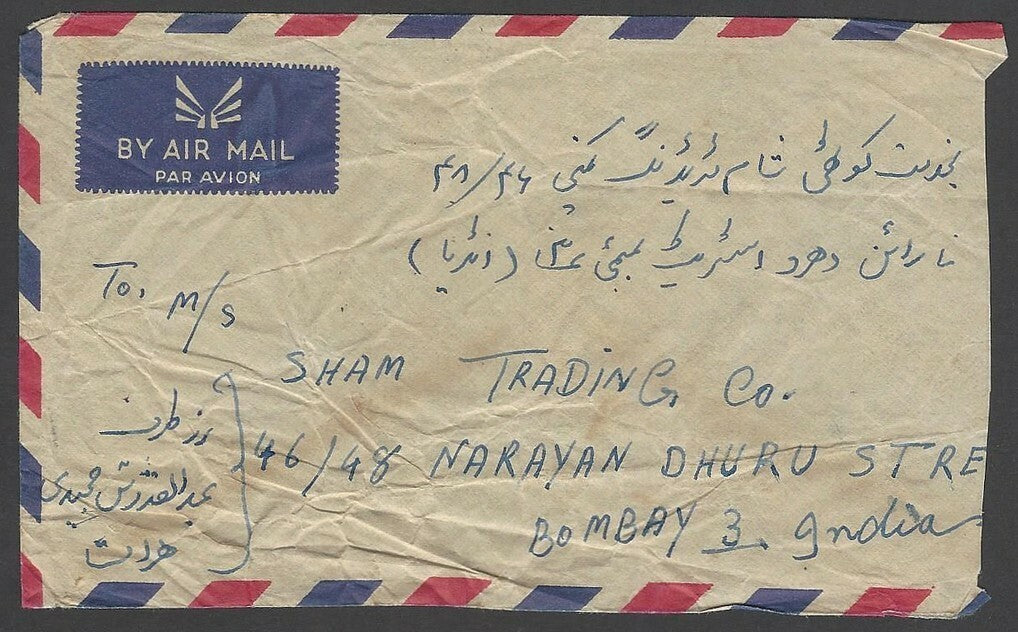 BY AIR MAIL
PAR AVION
بخدمت کوٹھی شام ٹریڈینگ کمپنی ۴۶/۴۸
نارائن دھرو اسٹریٹ بمبئی نمبر ۳ (انڈیا)
To,
M/S
SHAM TRADING Co.
46/48 NARAYAN DHURU STRE
BOMBAY 3. India
از طرف
عبدالقدوس مجیدی
هرات